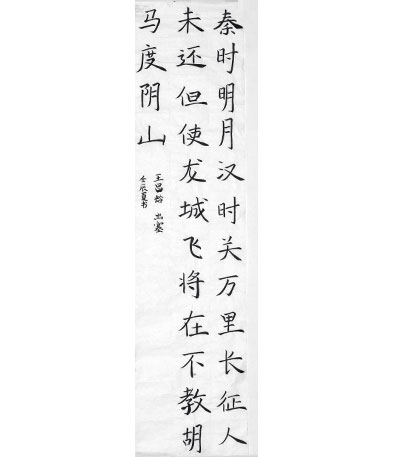 秦时明月汉时关万里长征人
未还但使龙城飞将在不教胡
马度阴山
王昌龄 出塞
壬辰夏书